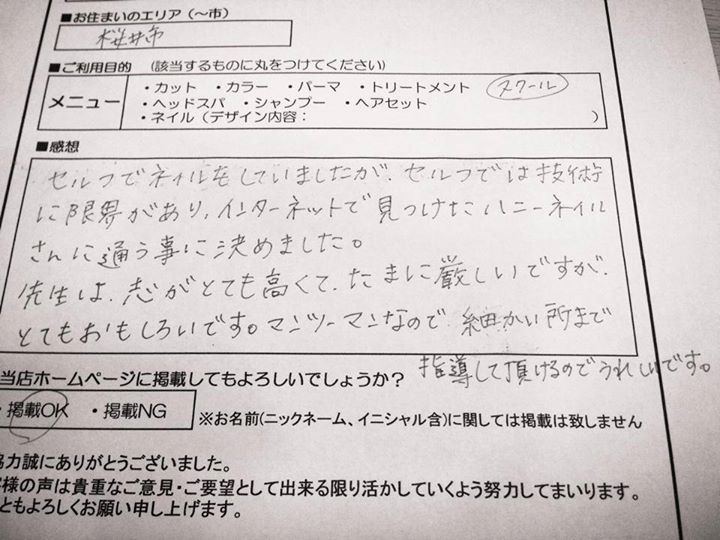 ■お住まいのエリア（～市）
桜井市
■ご利用目的 （該当するものに丸をつけてください）
メニュー
・カット ・カラー ・パーマ ・トリートメント スクール
・ヘッドスパ ・シャンプー ・ヘアセット
・ネイル（デザイン内容： ）
■感想
セルフでネイルをしていましたが、セルフでは技術
に限界があり、インターネットで見つけたハニーネイル
さんに通う事に決めました。
先生は、志がとても高くて、たまに厳しいですが、
とてもおもしろいです。マンツーマンなので、細かい所まで
指導して頂けるのでうれしいです。
当店ホームページに掲載してもよろしいでしょうか？
・掲載OK ・掲載NG ※お名前(ニックネーム、イニシャル含)に関しては掲載は致しません
力誠にありがとうございました。
様の声は貴重なご意見・ご要望として出来る限り活かしていくよう努力してまいります。
ともよろしくお願い申し上げます。